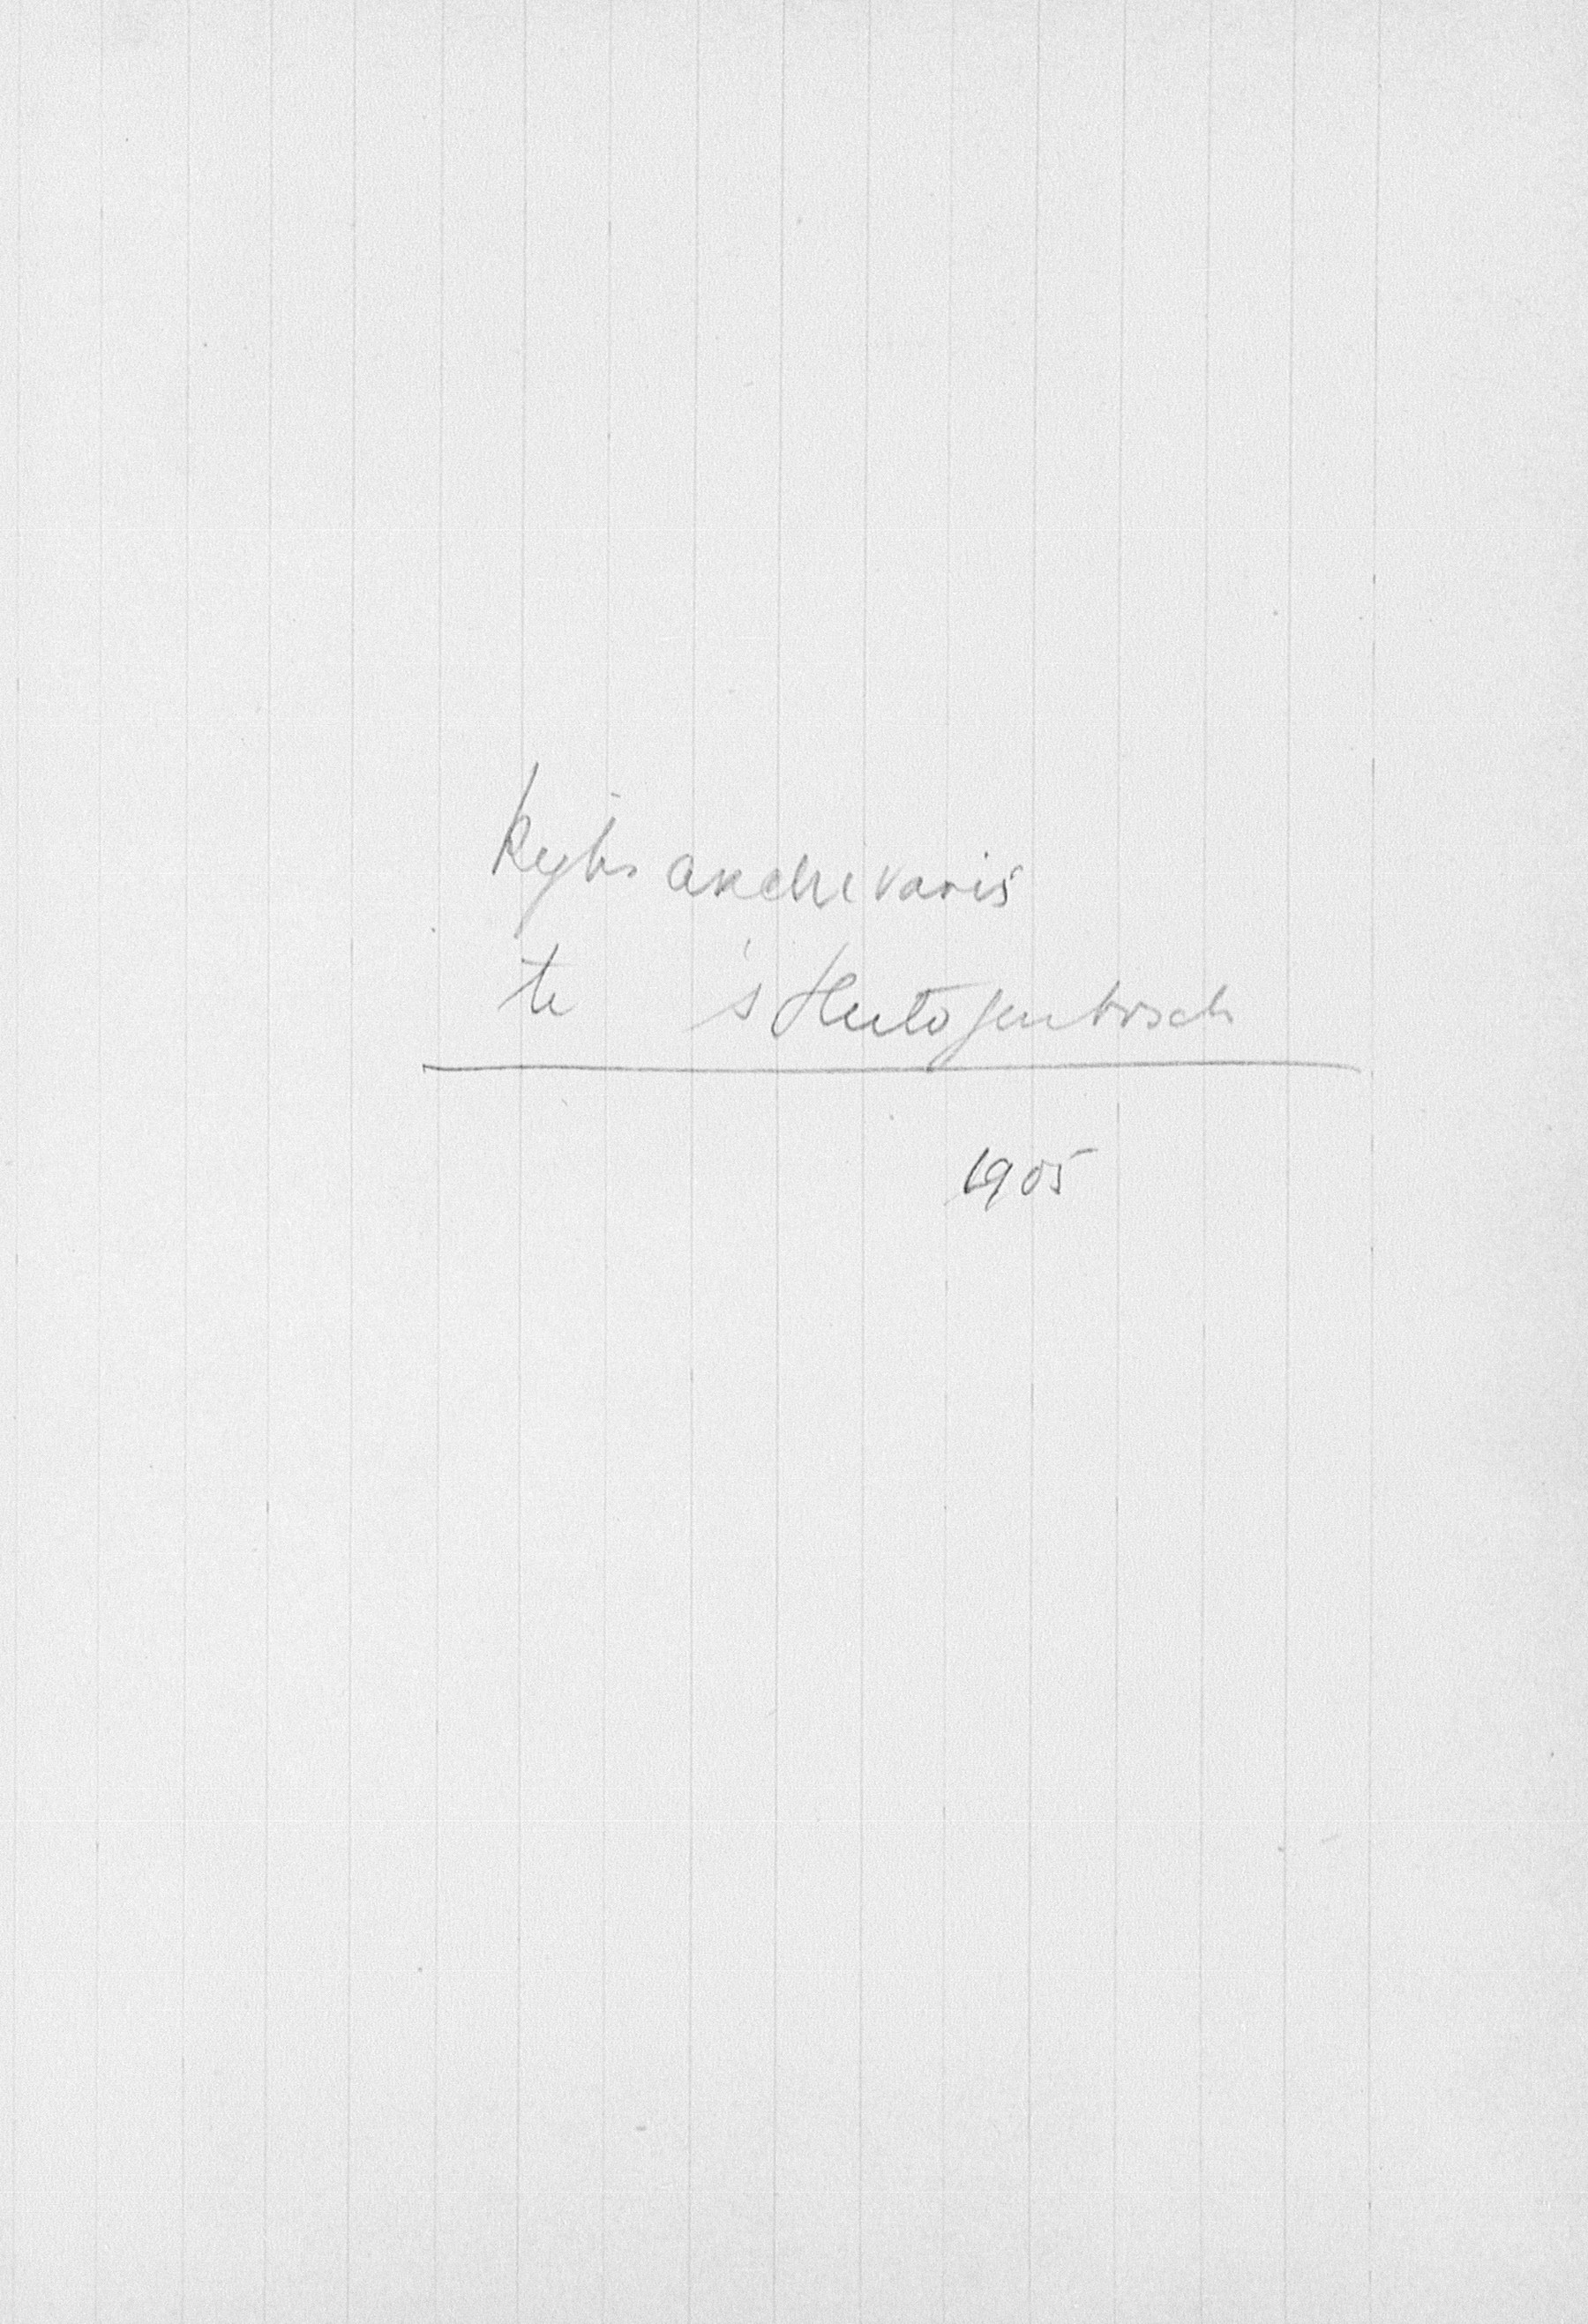 Rijksarchivaris
te 's Hertogenbosch
1905